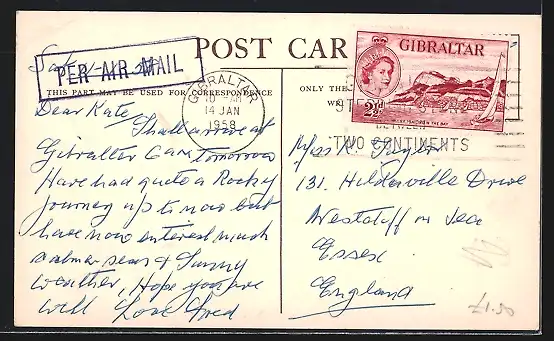 POST CAR
PER AIR MAIL
THIS PART MAY BE USED FOR CORRESPONDENCE
ONLY THE
WRI
GIBRALTAR
10 - AM
14 JAN
1958
GIBRALTAR
2½d
BETWEEN
TWO CONTINENTS
Dear Kate
Shall arrive at
Gibraltar 6am tomorrow
Have had quite a Rocky
journey up to now but
have now entered much
calmer seas & Sunny
weather, Hope you are
well Love Fred
Miss K.
131. Hildaville Drive
Westcliff on Sea
Essex
England
£1.50